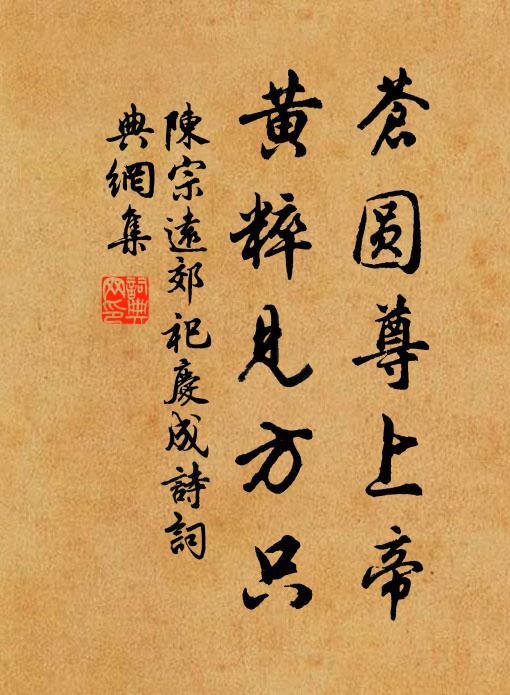 蒼圓尊上帝
黃粹見方只
陳宗遠郊祀慶成詩詞
典網集
詞典
网印